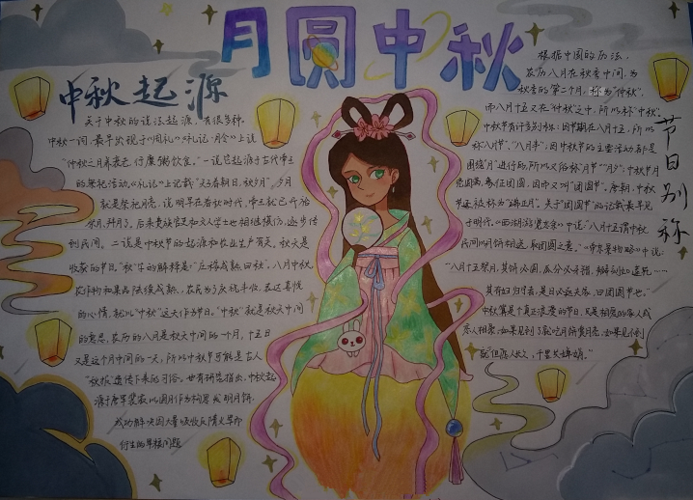 月圆中秋
中秋起源
关于中秋的说法起源，有很多种，
中秋一词，最早出现于《周礼》《礼记·月令》上说
"仲秋之月养衰老，行糜粥饮食。"一说它起源于古代帝王
的祭祀活动。《礼记》上记载"天子春朝日，秋夕月"，夕月
就是祭祀月亮，说明早在春秋时代，帝王就已开始
祭月、拜月了，后来贵族官吏和文人学士也相继仿效，逐步传
到民间。二说是中秋节的起源和农业生产有关。秋天是
收获的季节。"秋"字的解释是："庄稼成熟曰秋"。八月中秋，
农作物和各种
的心情，就以"中秋"这天作为节日。"中秋"就是秋天中间
的意思，农历的八月是秋天中间的一个月，十五日
又是这个月中间的一天，所以中秋节可能是古人
"秋报"遗传下来的习俗。也有研究指出，中秋起
源于唐军
节日别称
根据中国的历法，
农历八月在秋季中间，为
秋季的第二个月，称为"仲秋"，
而八月十五又在"仲秋"之中，所以称"中秋"。
中秋节有许多别称：因节期在八月十五，所以
称"八月节"、"八月半"；因中秋节的主要活动都是
围绕"月"进行的，所以又俗称"月节""月夕"；中秋节月
亮圆满，象征团圆，因而又叫"团圆节"。唐朝，中秋
节还被称为"端正月"。关于"团圆节"的记载最早见
于明代。《西湖游览志余》中说："八月十五谓中秋，
民间以月饼相送，取团圆之意"。《帝京景物略》中说：
"八月十五祭月，其饼必圆，分瓜必牙错，瓣刻如莲花……
其有妇归宁者，是日必返夫家，曰团圆节也。"